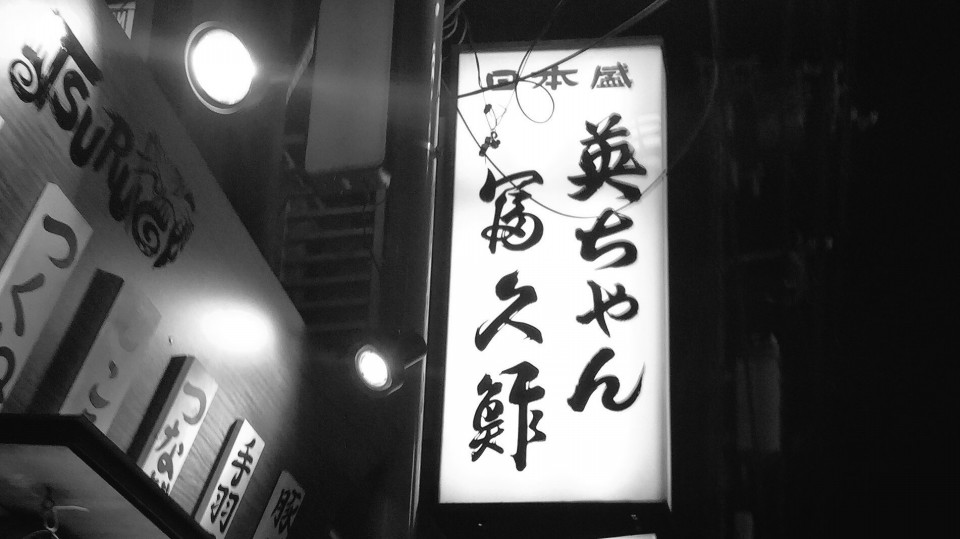 日本盛
英ちゃん
冨久鮓
TSURU
つくね
つなぎ
手羽
豚